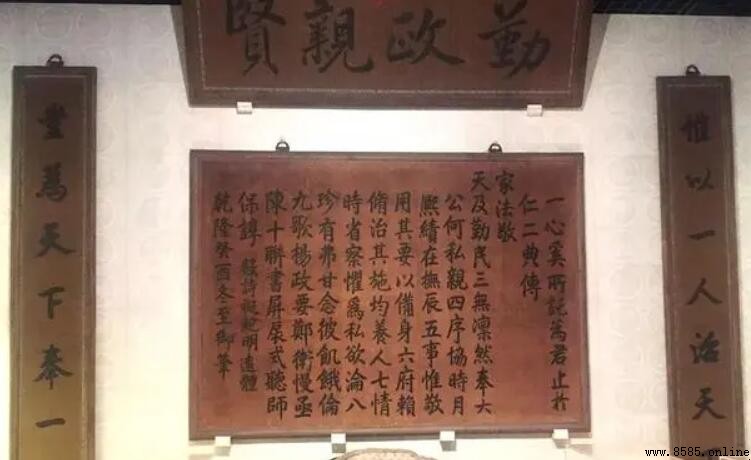 勤政親賢
惟以一人治天
一心奚所託爲君止於
仁二典傳
家法敬
天及勤民三無凛然奉大
公何私親四序協時月
熙績在撫辰五事惟敬
用其要以備身六府賴
脩治其施均養人七情
時省察懼爲私欲淪八
珍有弗甘念彼飢餓倫
九歌揚政要鄭衛慢亟
陳十聯書屏扆式聽師
保諄 數詩擬鮑明遠體
乾隆癸酉冬至御筆
豈爲天下奉一
www.8585.online